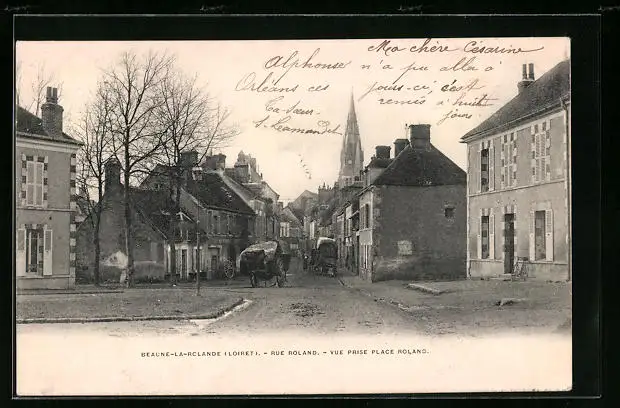 Ma chère Césarine
Alphonse n'a pu alla à
Orléans ces jours-ci, c'est
remis à huite
jours
Ta sœur
BEAUNE-LA-ROLANDE (LOIRET). - RUE ROLAND. - VUE PRISE PLACE ROLAND.